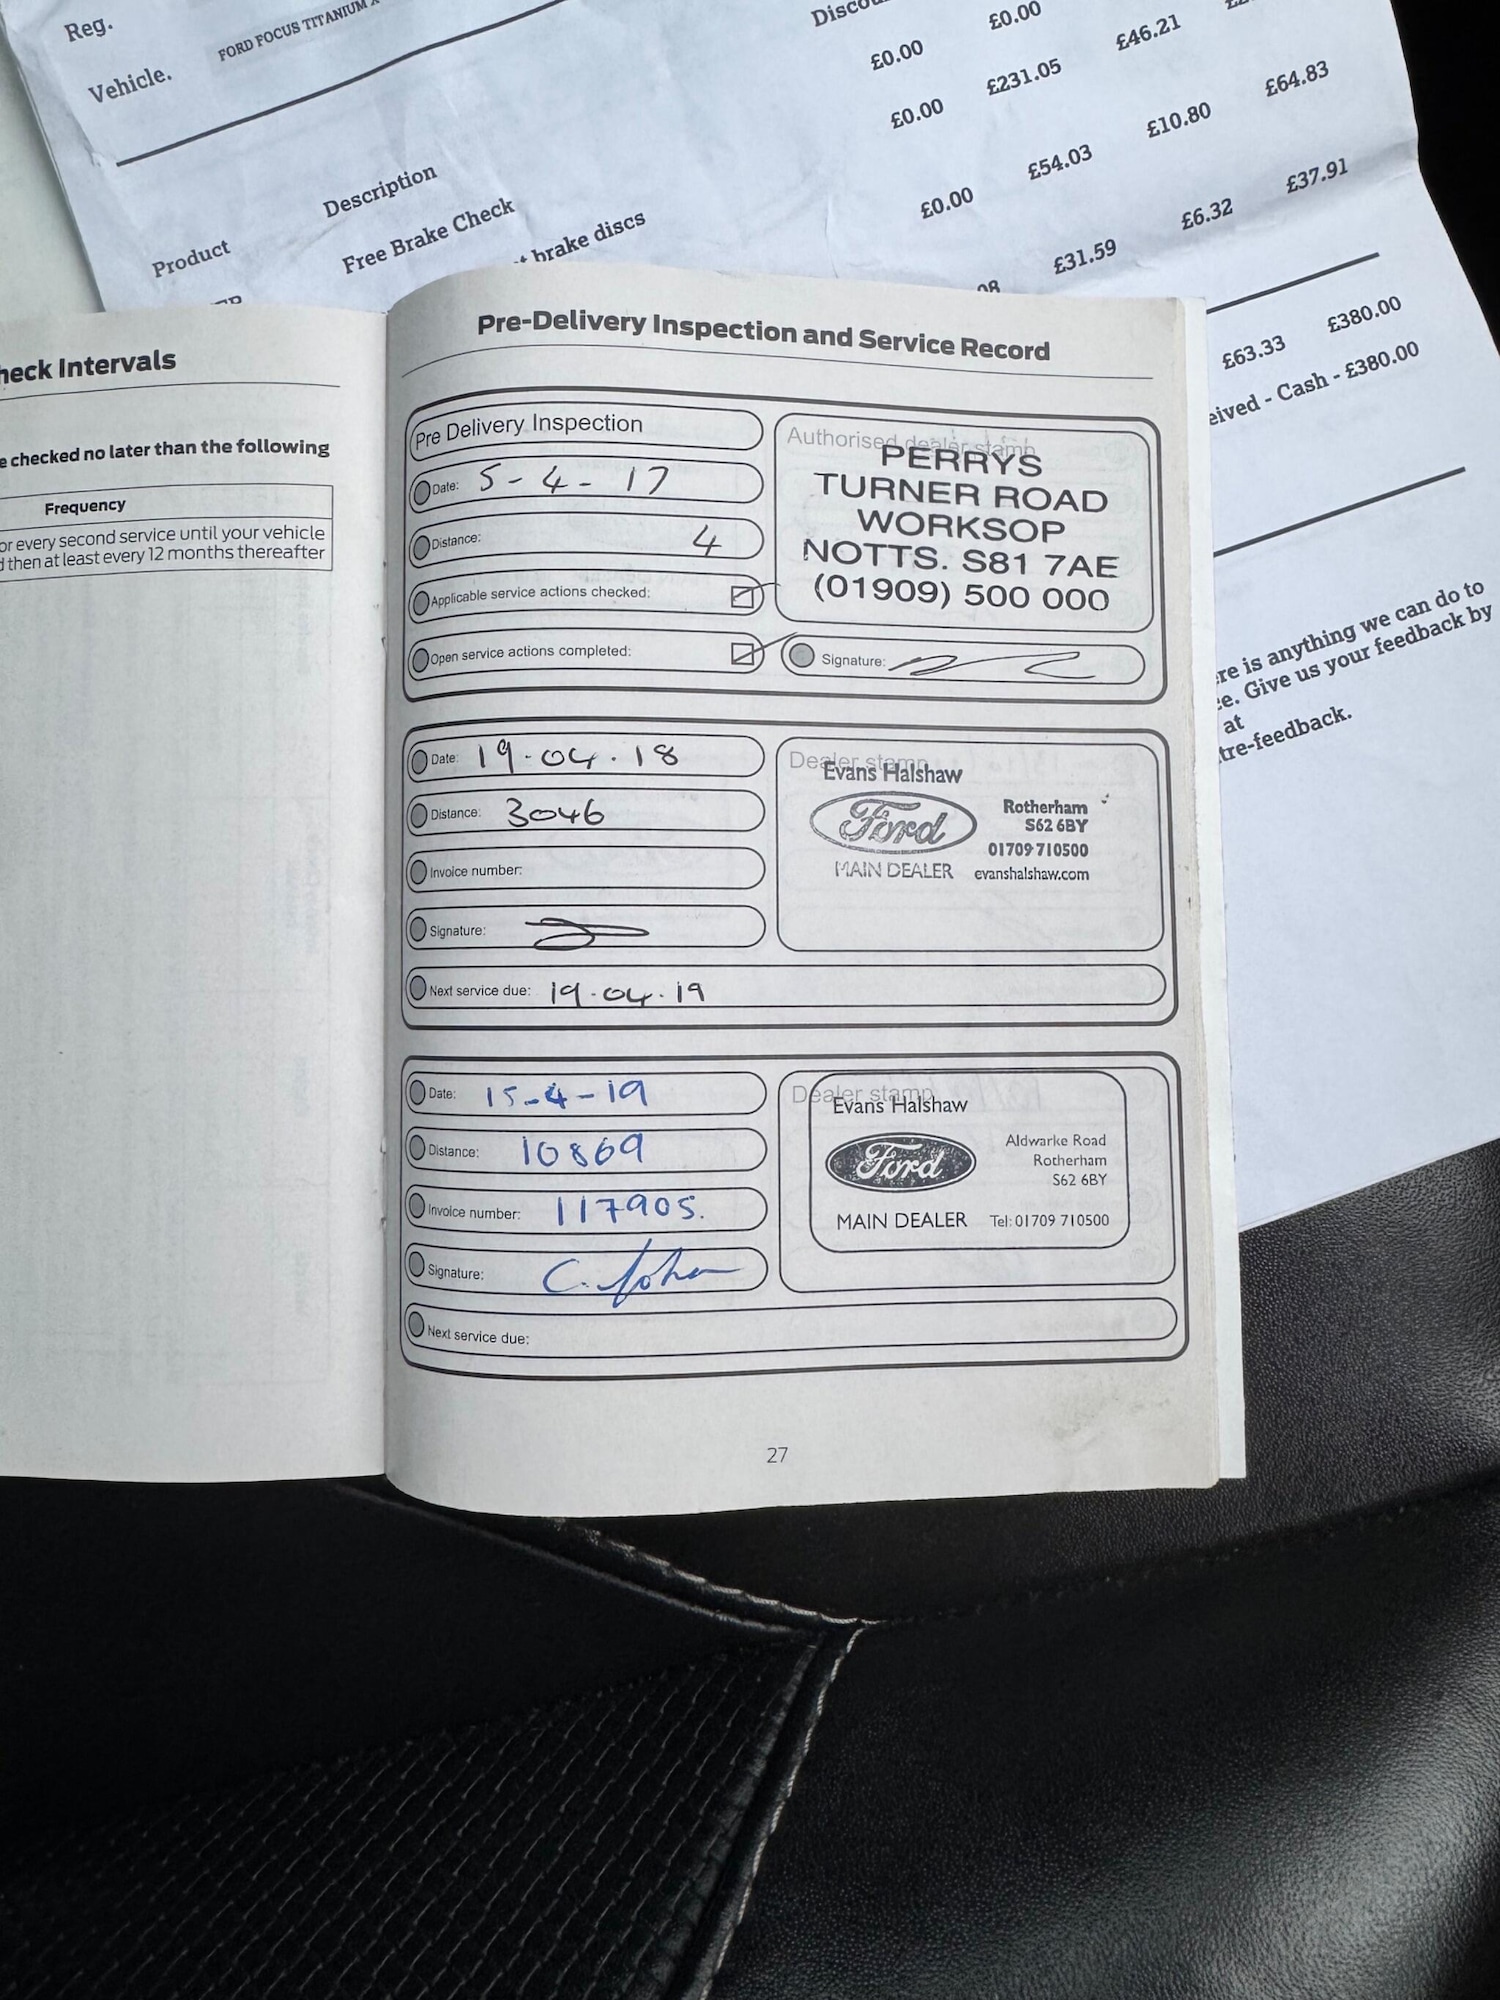 Reg.
Vehicle.
FORD FOCUS TITANIUM
£0.00 £0.00
£0.00 £231.05 £46.21
£0.00 £54.03 £10.80 £64.83
£31.59 £6.32 £37.91
£63.33 £380.00
- Cash - £380.00
Product Description
Free Brake Check
brake discs
is anything we can do to
Give us your feedback by
at
Check Intervals
checked no later than the following
Frequency
or every second service until your vehicle
then at least every 12 months thereafter
Pre-Delivery Inspection and Service Record
Pre Delivery Inspection
Date: 5-4-17
Distance: 4
Applicable service actions checked:
Open service actions completed:
Authorised dealer stamp
PERRYS
TURNER ROAD
WORKSOP
NOTTS. S81 7AE
(01909) 500 000
Signature:
Date: 19.04.18
Distance: 3046
Invoice number:
Signature:
Next service due: 19.04.19
Dealer stamp
Evans Halshaw
Ford
MAIN DEALER
Rotherham
S62 6BY
01709 710500
evanshalshaw.com
Date: 15-4-19
Distance: 10869
Invoice number: 117905.
Signature:
Next service due:
Dealer stamp
Evans Halshaw
Ford
MAIN DEALER
Aldwarke Road
Rotherham
S62 6BY
Tel: 01709 710500
27